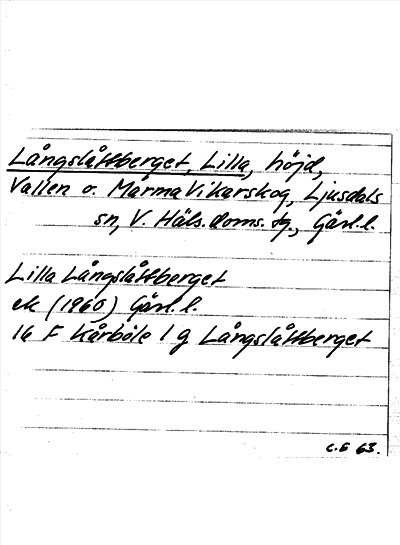 Långslåttberget, Lilla, höjd,
Vallen o. Mårma Vikarskog, Ljusdals
sn, V. Häls. doms. tg., Gävl. l.
Lilla Långslåttberget
ek (1960) Gävl. l.
16 F Kårböle 1 g Långslåttberget
C.E 63.